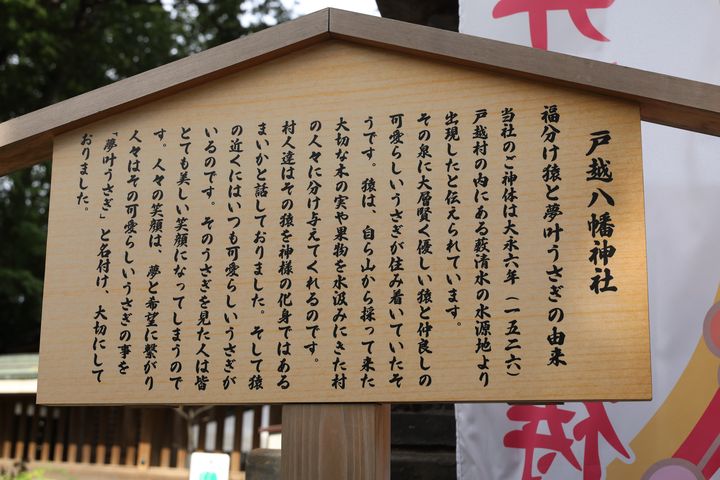 戸越八幡神社
福分け猿と夢叶うさぎの由来
当社のご神体は大永六年（一五二六）
戸越村の内にある薮清水の水源地より
出現したと伝えられています。
その泉に大層賢く優しい猿と仲良しの
可愛らしいうさぎが住み着いていたそ
うです。猿は、自ら山から採って来た
大切な木の実や果物を水汲みにきた村
の人々に分け与えてくれるのです。
村人達はその猿を神様の化身ではある
まいかと話しておりました。そして猿
の近くにはいつも可愛らしいうさぎが
いるのです。そのうさぎを見た人は皆
とても美しい笑顔になってしまうので
す。人々の笑顔は、夢と希望に繋がり
人々はその可愛らしいうさぎの事を
「夢叶うさぎ」と名付け、大切にして
おりました。